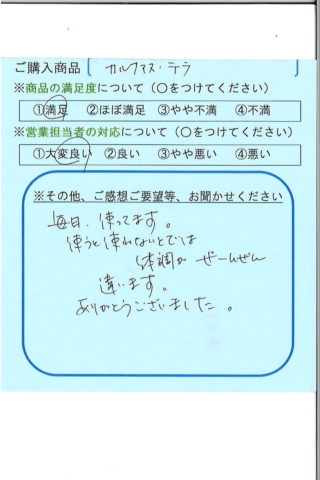 ご購入商品 [ カルファス・テラ
※商品の満足度について（○をつけてください）
①満足 ②ほぼ満足 ③やや不満 ④不満
※営業担当者の対応について（○をつけてください）
①大変良い ②良い ③やや悪い ④悪い
※その他、ご感想ご要望等、お聞かせください
毎日、使ってます。
使うと使わないとでは
体調が ぜーんぜん
違います。
ありがとうございました。